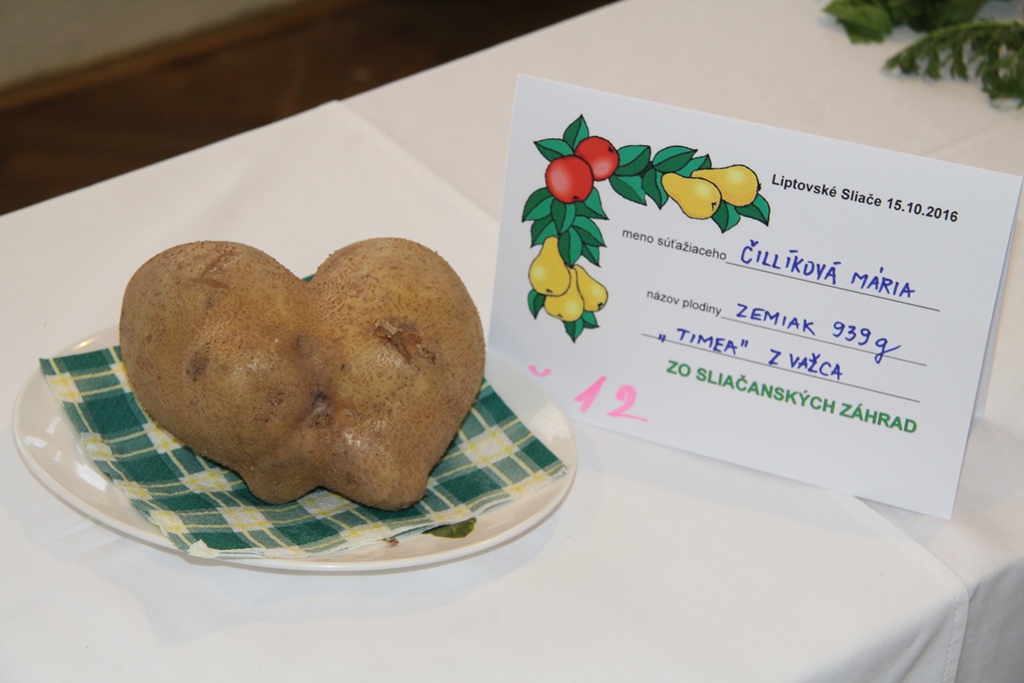 Liptovské Sliače 15.10.2016
meno súťažiaceho ČILLÍKOVÁ MÁRIA
názov plodiny ZEMIAK 939g
„TIMEA" Z VAŽCA
ZO SLIAČANSKÝCH ZÁHRAD
12